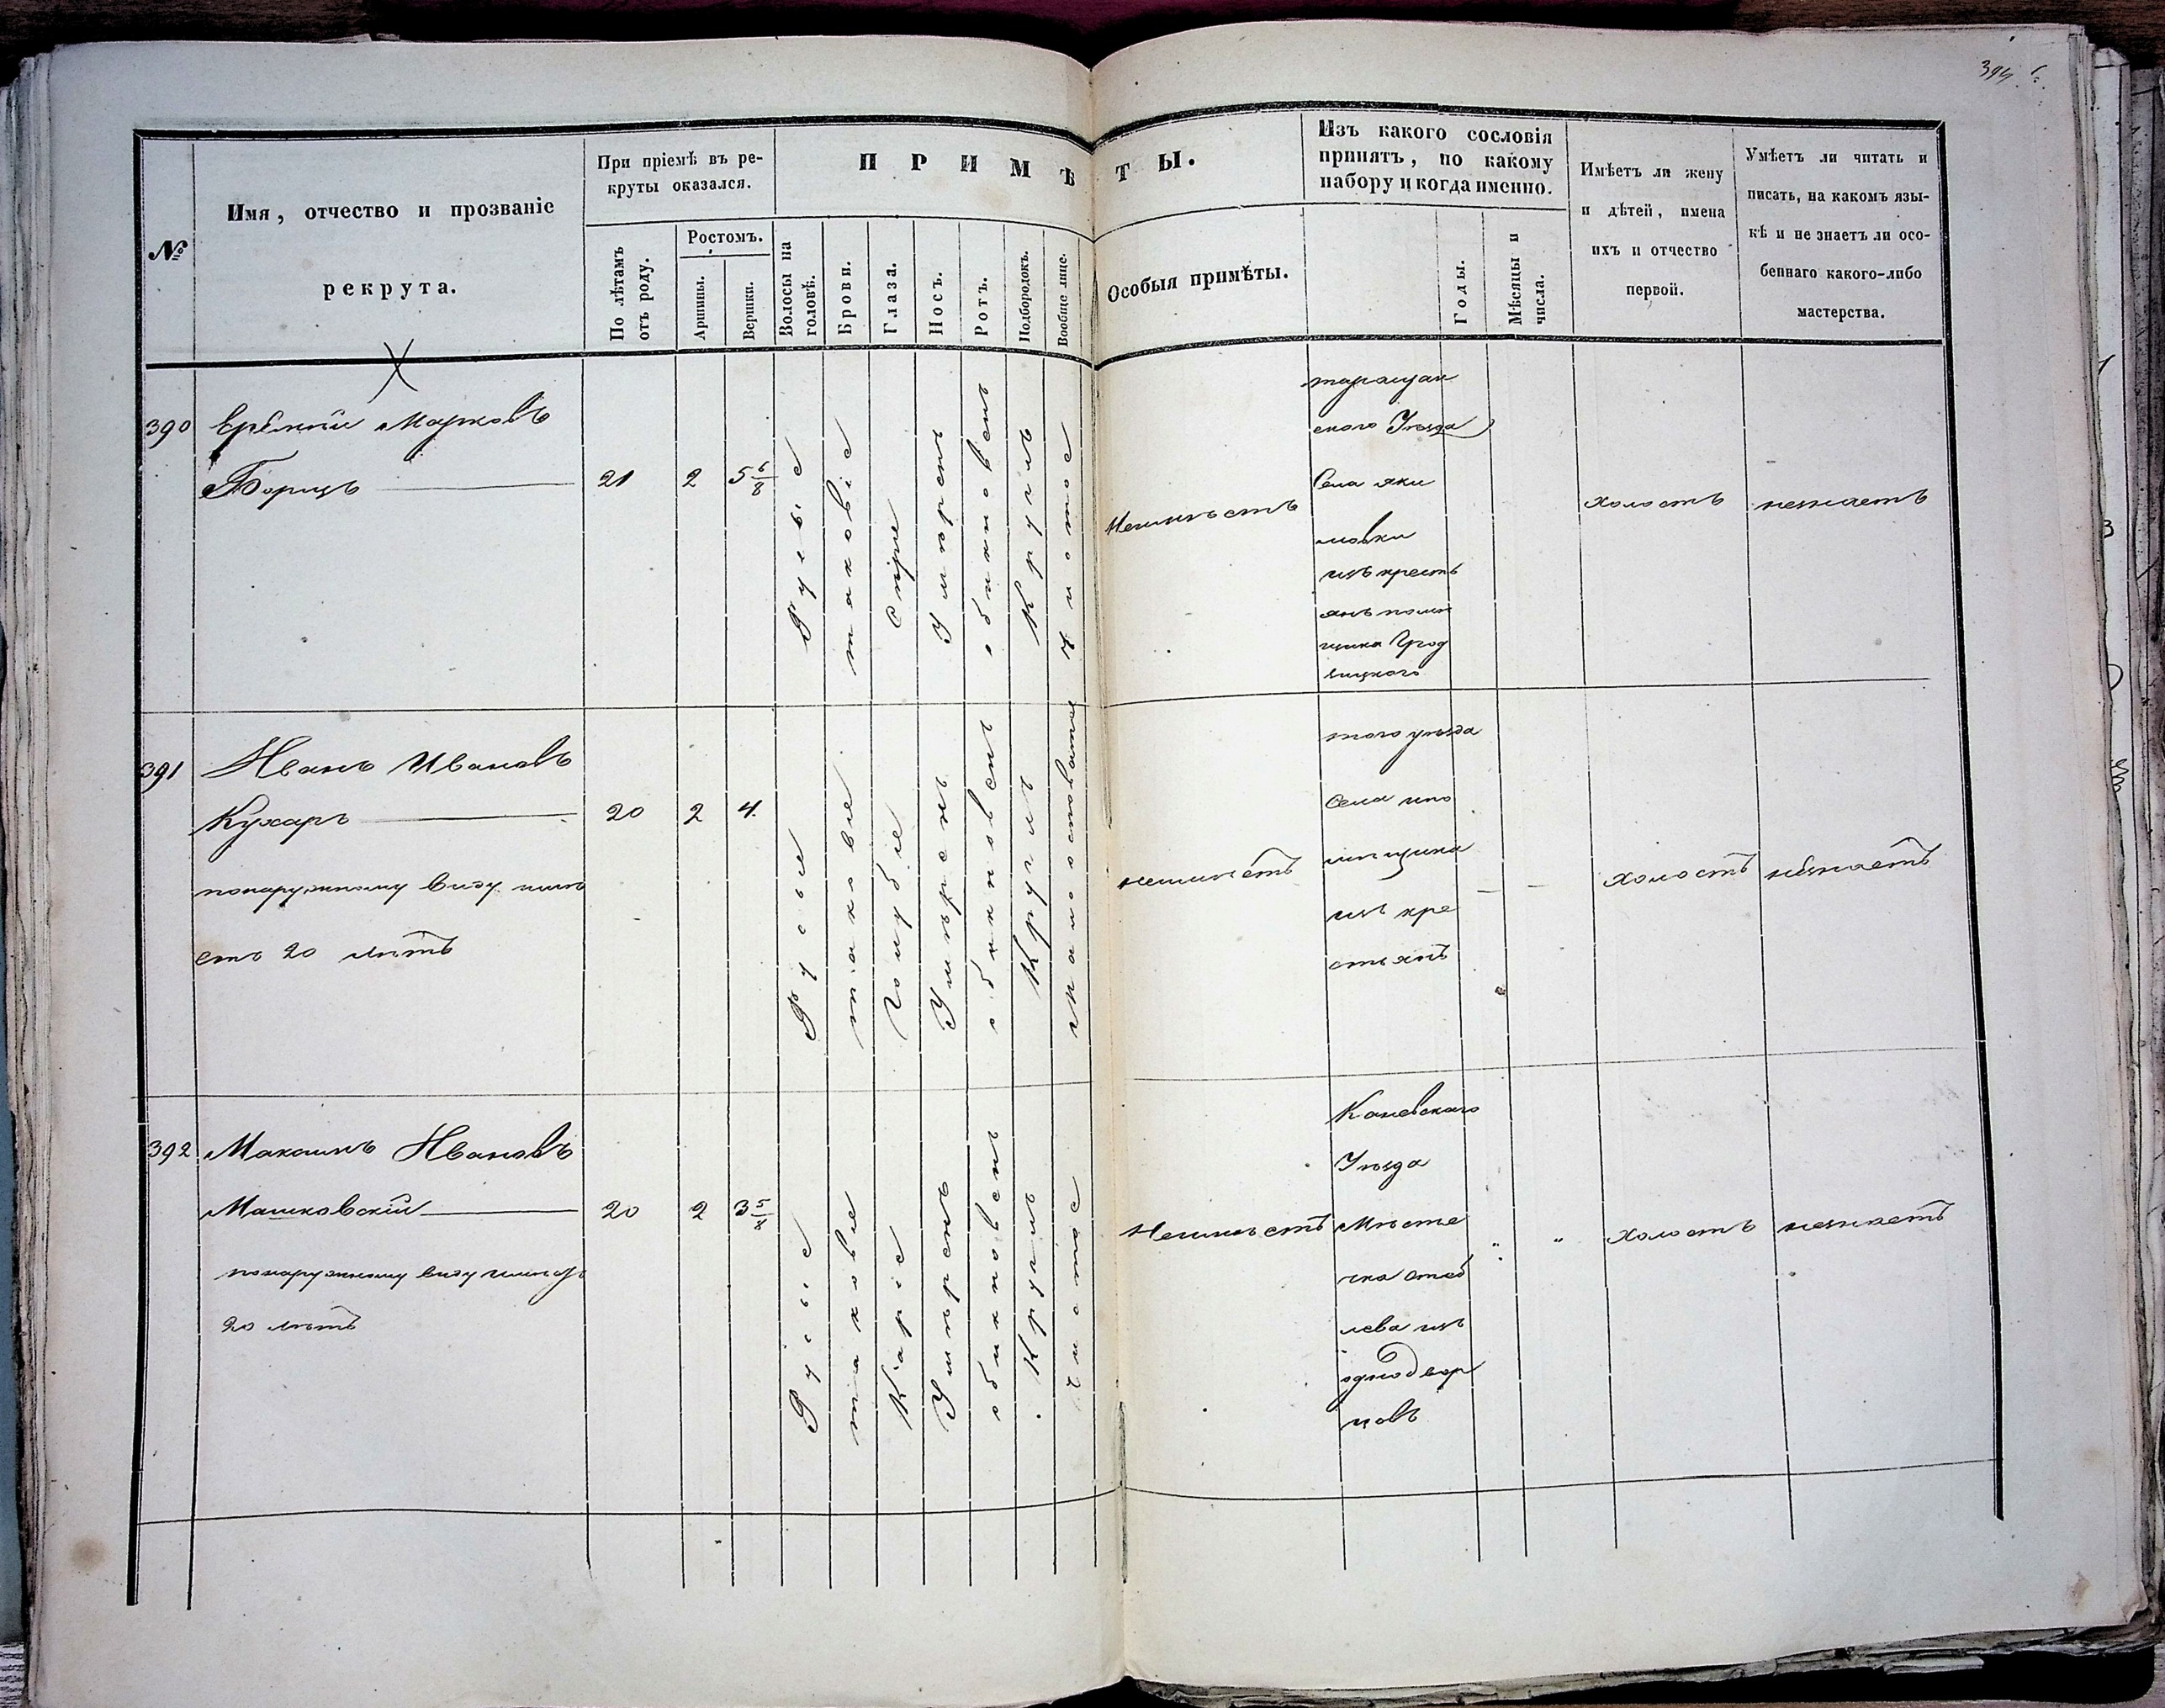 394
№
Имя, отчество и прозваніе
рекрута.
При пріемѣ въ ре-
круты оказался.
По лѣтамъ
отъ роду.
Ростомъ.
Аршины.
Вершки.
ПРИМѢТЫ.
Волосы на
головѣ.
Брови.
Глаза.
Носъ.
Ротъ.
Подбородокъ.
Вообще лице.
Особыя примѣты.
Изъ какого сословія
принятъ, по какому
набору и когда именно.
Годы.
Мѣсяцы и
числа.
Имѣетъ ли жену
и дѣтей, имена
ихъ и отчество
первой.
Умѣетъ ли читать и
писать, на какомъ язы-
кѣ и не знаетъ ли осо-
беннаго какого-либо
мастерства.
390
Марковъ
21
2
5 6/8
Русые
таковіе
Сѣрые
Умѣренъ
обикновен
Круглъ
Чистое
Неимѣетъ
таращан
ского Уѣзда
Села Яки
мовки
изъ кресть
янъ помѣ
щика
холостъ
незнаетъ
391
Иванъ Ивановъ
Кухаръ
понаружному виду имѣ
етъ 20 лѣтъ
20
2
4.
Русые
таковые
Голубіе
Умѣренъ
обикновен
Круглъ
неимѣетъ
того уѣзда
Села
изъ кре
стьянъ
холостъ
незнаетъ
392
Максимъ Ивановъ
Машковскій
понаружному виду имѣетъ
20 лѣтъ
20
2
3 5/8
Русые
таковые
Каріе
Умѣренъ
обикновен
Круглъ
чистое
Неимѣетъ
Каневскаго
Уѣзда
Мѣсте
чка Стеб
лева изъ
однодвор
цовъ
" "
холостъ
незнаетъ